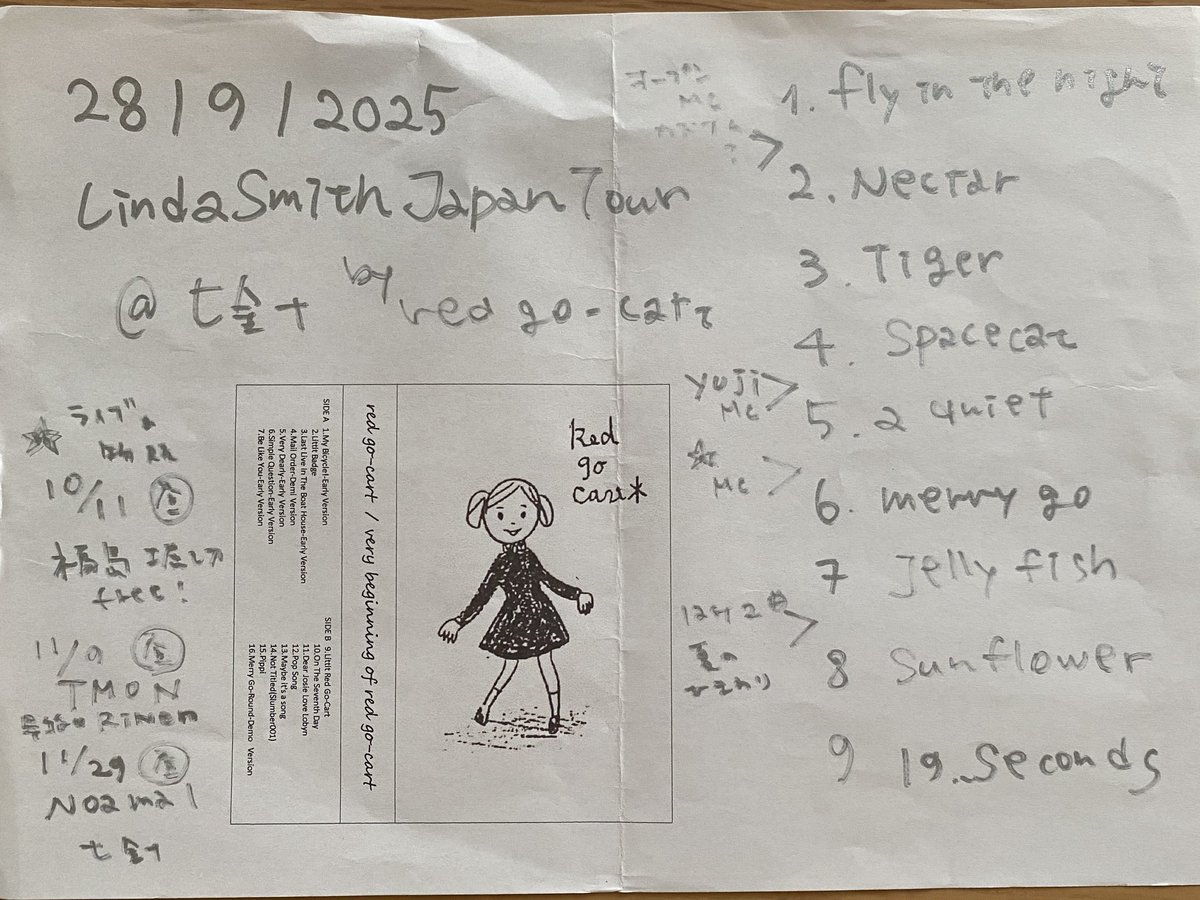 28/9/2025
Linda Smith Japan Tour
@ 七針 by red go-cart
ライブ
10/11 土
福島 堀切
free!
11/9
TMON
11/29 土
七針
Red
go
cart*
red go-cart / very beginning of red go-cart
SIDE A 1.My Bicycle-Early Version
2.Littlt Badge
3.Last Live In The Boat House-Early Version
4.Mail Order-Demi Version
5.Very Dearly-Early Version
6.Simple Question-Early Version
7.Be Like You-Early Version
SIDE B 9.Littlt Red Go-Cart
10.On The Seventh Day
11.Dear Josie Love Lobyn
12.Pop Song
13.Maybe it's a song
14.Not Titled(Slumber001)
15.Pippi
16.Merry Go-Round-Demo Version
オープン
MC
1. fly in the night
2. Nectar
3. Tiger
4. Spacecat
yuji
MC
5. 2 quiet
☆
MC
6. merry go
7 Jelly fish
夏の
8 Sunflower
9 19.seconds